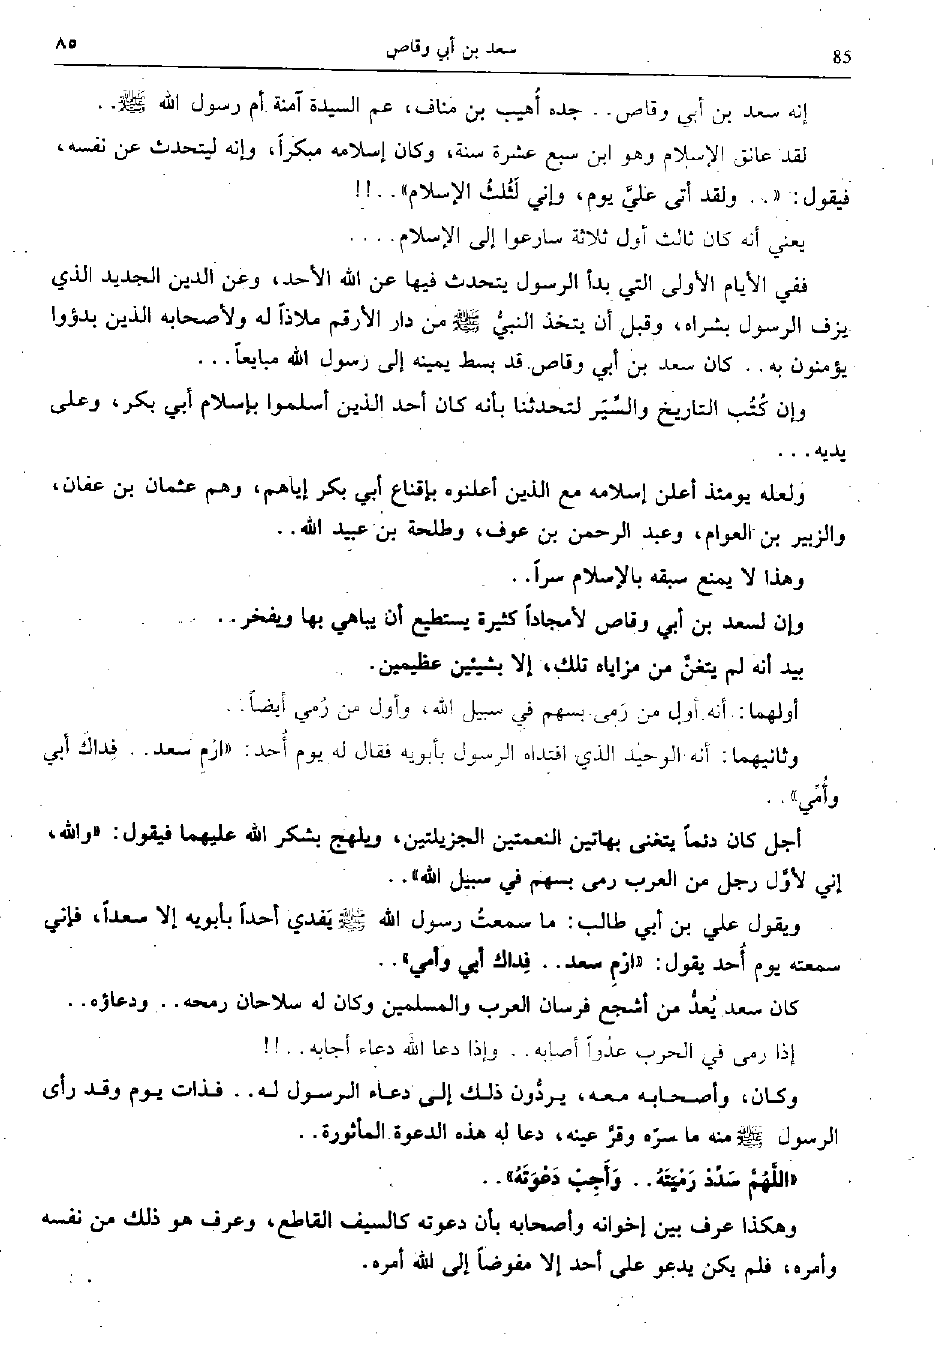 85 سعد بن أبي وقاص ٨٥
إنه سعد بن أبي وقاص.. جده أُهيب بن مناف، عم السيدة آمنة أم رسول الله ﷺ..
لقد عانق الإسلام وهو ابن سبع عشرة سنة، وكان إسلامه مبكراً، وإنه ليتحدث عن نفسه،
فيقول: «.. ولقد أتى عليَّ يوم، وإني لَثُلثُ الإسلام»..!!
يعني أنه كان ثالث أول ثلاثة سارعوا إلى الإسلام....
ففي الأيام الأولى التي بدأ الرسول يتحدث فيها عن الله الأحد، وعن الدين الجديد الذي
يزف الرسول بشراه، وقبل أن يتخذ النبيُّ ﷺ من دار الأرقم ملاذاً له ولأصحابه الذين بدؤوا
يؤمنون به.. كان سعد بن أبي وقاص قد بسط يمينه إلى رسول الله مبايعاً...
وإن كُتُب التاريخ والسِّيَر لتحدثنا بأنه كان أحد الذين أسلموا بإسلام أبي بكر، وعلى
يديه...
ولعله يومئذ أعلن إسلامه مع الذين أعلنوه بإقناع أبي بكر إياهم، وهم عثمان بن عفان،
والزبير بن العوام، وعبد الرحمن بن عوف، وطلحة بن عبيد الله..
وهذا لا يمنع سبقه بالإسلام سراً..
وإن لسعد بن أبي وقاص لأمجاداً كثيرة يستطيع أن يباهي بها ويفخر..
بيد أنه لم يتغنَّ من مزاياه تلك، إلا بشيئين عظيمين.
أولهما: أنه أول من رَمى بسهم في سبيل الله، وأول من رُمي أيضاً..
وثانيهما: أنه الوحيد الذي افتداه الرسول بأبويه فقال له يوم أُحد: «ارْمِ سعد.. فِداكَ أبي
وأُمِّي»..
أجل كان دئماً يتغنى بهاتين النعمتين الجزيلتين، ويلهج بشكر الله عليهما فيقول: «والله،
إني لأوَّل رجل من العرب رمى بسهم في سبيل الله»..
ويقول علي بن أبي طالب: ما سمعتُ رسول الله ﷺ يَفدي أحداً بأبويه إلا سعداً، فإني
سمعته يوم أُحد يقول: «ارْمِ سعد.. فِداك أبي وأمي»..
كان سعد يُعدُّ من أشجع فرسان العرب والمسلمين وكان له سلاحان رمحه.. ودعاؤه..
إذا رمى في الحرب عدُواً أصابه.. وإذا دعا اللهَ دعاء أجابه..!!
وكان، وأصحابه معه، يردُّون ذلك إلى دعاء الرسول له.. فذات يوم وقد رأى
الرسول ﷺ منه ما سرّه وقرَّ عينه، دعا له هذه الدعوة المأثورة..
«اللَّهُمَّ سَدِّدْ رَمْيَتَهُ.. وَأَجِبْ دَعْوَتَهُ»..
وهكذا عرف بين إخوانه وأصحابه بأن دعوته كالسيف القاطع، وعرف هو ذلك من نفسه
وأمره، فلم يكن يدعو على أحد إلا مفوضاً إلى الله أمره.